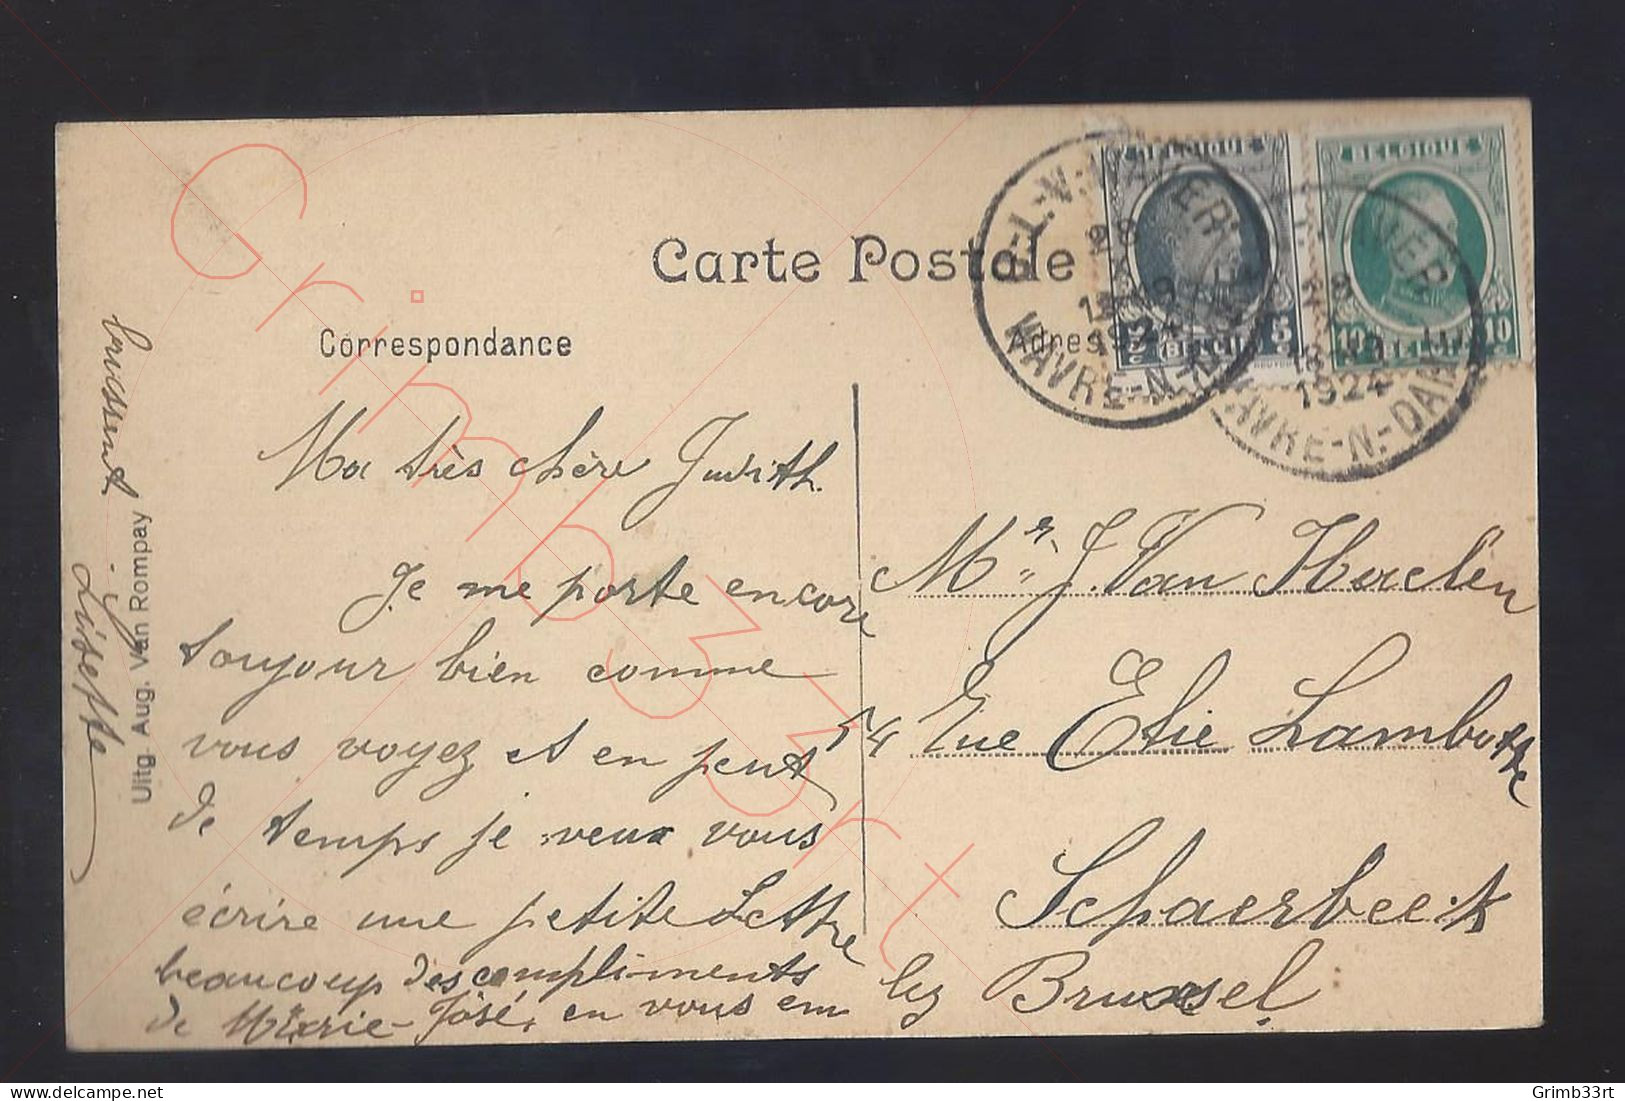 Carte Postale
Correspondance
Adres
BELGIQUE
5
BELGIË
BELGIQUE
10 10
BELGIË
O-L-V-WAVER
18-19
1924
WAVRE-N-DAME
WAVER
18-19
1924
WAVRE-N-DAME
Ma très chère Judith.
Je me porte encore
toujour bien comme
vous voyez et en peut
de temps je veux vous
écrire une petite Lettre
beaucoup des compliments
de Marie-José, en vous em
brassent.
Lisette
Uitg. Aug. Van Rompay
Mr. J. Van Haelen
54 Rue Elie Lambotte
Schaerbeek
lez Bruxsel
Grimb33rt
Grimb33rt